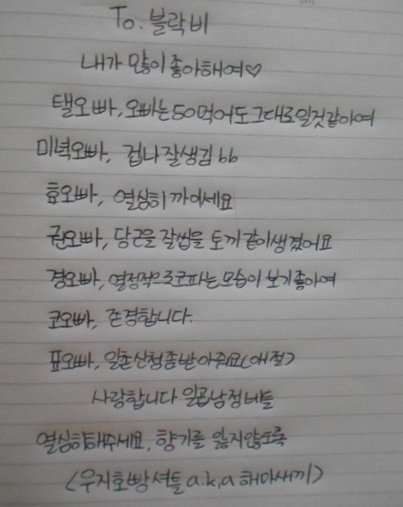 To. 블락비
내가 많이 좋아해여♡
탤오빠, 오빠는 50먹어도 그대로일것같아여
미녁오빠, 겁나 잘생김 bb
효오빠, 열심히 까이세요
권오빠, 당근을 잘씹을 토끼같이생겼어요
경오빠, 열정적으로코파는모습이 보기좋아여
코오빠, 존경합니다.
표오빠, 일촌신청좀받아줘요(애절)
사랑합니다 일곱남정네들
열심히해주세요, 향기를 잃지않도록
(우지호빵셔틀 a.k.a 해마새끼)